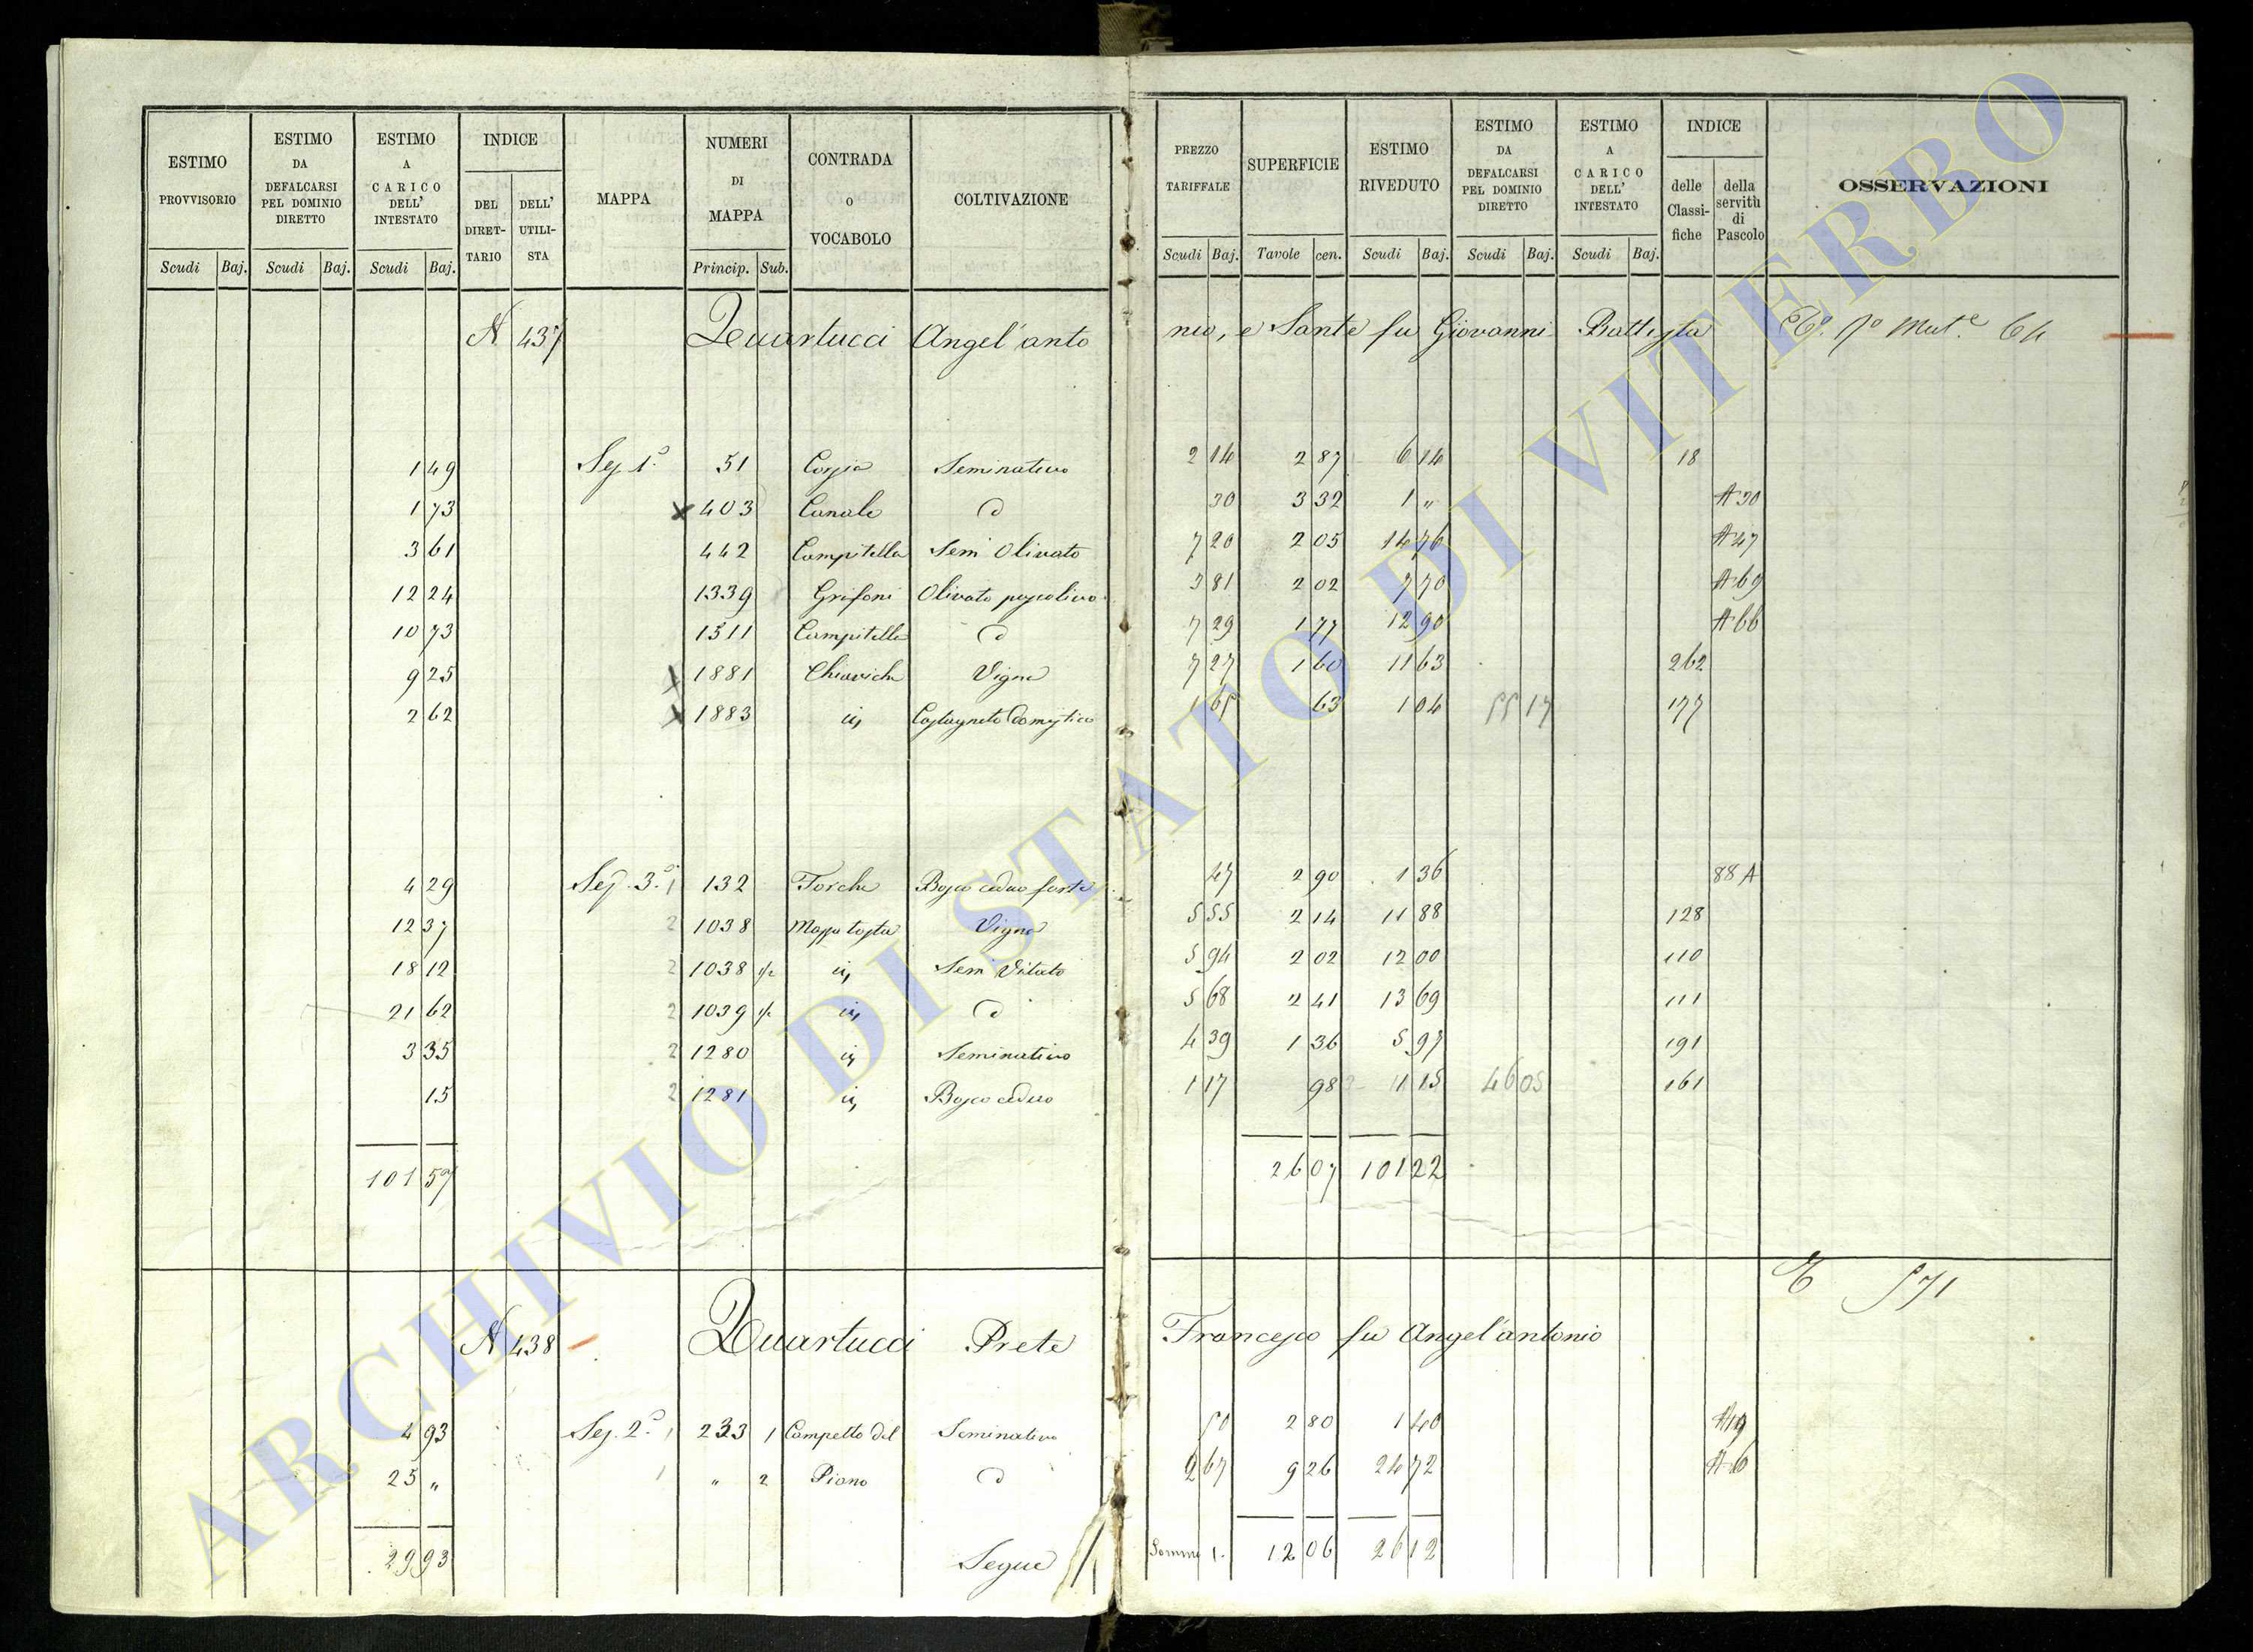 ESTIMO PROVVISORIO | ESTIMO DA DEFALCARSI PEL DOMINIO DIRETTO | ESTIMO A CARICO DELL' INTESTATO | INDICE DEL DIRETTARIO | DELL' UTILISTA | MAPPA | NUMERI DI MAPPA | CONTRADA O VOCABOLO | COLTIVAZIONE | PREZZO TARIFFALE | SUPERFICIE | ESTIMO RIVEDUTO | ESTIMO DA DEFALCARSI PEL DOMINIO DIRETTO | ESTIMO A CARICO DELL' INTESTATO | INDICE delle Classifiche | della servitù di Pascolo | OSSERVAZIONI
Scudi Baj. Scudi Baj. Scudi Baj. Princip. Sub. Scudi Baj. Tavole cen. Scudi Baj. Scudi Baj. Scudi Baj.
N 437 Quartucci Angel'antonio, e Sante fu Giovanni Battista 64
1 49 Sez. 1ª 51 Seminativo 2 14 2 87 6 14 18
1 73 x 403 Canale d 30 3 32 1 " A 30
3 61 442 Campitella Sem Olivato 7 20 2 05 14 76 A 47
12 24 1339 Grifoni Olivato pascolivo 3 81 2 02 7 70 A 69
10 73 1511 Campitella d 7 29 1 77 12 90 A 66
9 25 x 1881 Chiaviche Vigna 7 27 1 60 11 63 262
2 62 x 1883 iy Castagneto Domestico 1 65 63 1 04 55 17 177
4 29 Sez. 3ª 1 132 Torche Bosco ceduo forte 47 2 90 1 36 88 A
12 37 2 1038 Massa tosta Vigna 5 55 2 14 11 88 128
18 12 2 1038 1/2 iy Sem Vitato 5 94 2 02 12 00 110
21 62 2 1039 1/2 iy d 5 68 2 41 13 69 111
3 35 2 1280 iy Seminativo 4 39 1 36 5 97 191
15 2 1281 iy Bosco ceduo 1 17 98 1 15 46 05 161
101 57 26 07 101 22
571
N 438 Quartucci Prete Francesco fu Angel'antonio
4 93 Sez. 2ª 1 233 1 Campetto del Seminativo 50 2 80 1 40 A 19
25 " 1 " 2 Piano d 2 67 9 26 24 72 A 6
29 93 Segue Somma 12 06 26 12
ARCHIVIO DI STATO DI VITERBO